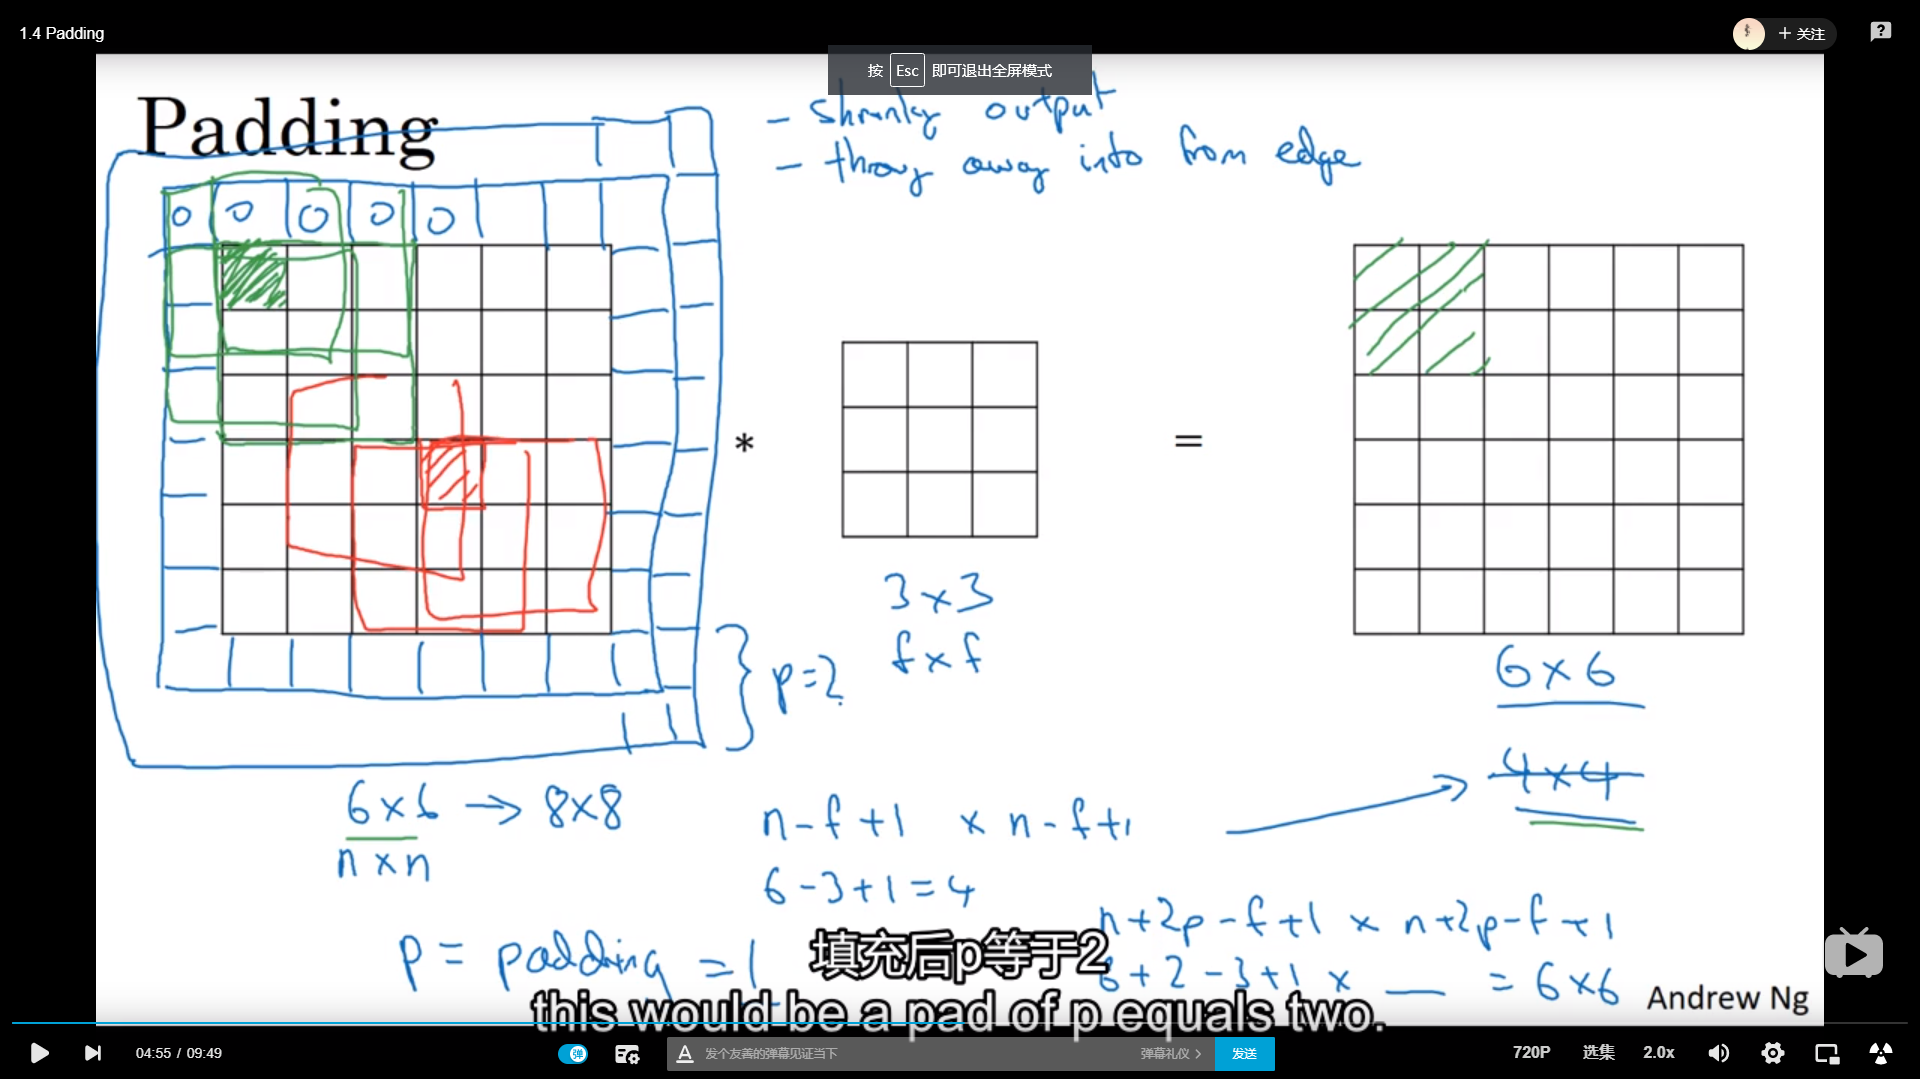 1.4 Padding
+ 关注
按 Esc 即可退出全屏模式
Padding
- shrinky output
- throw away info from edge
0 0 0 0 0
*
=
3 x 3
f x f
p=2
6 x 6
4 x 4
6 x 6 → 8x8
n x n
n-f+1 x n-f+1
6-3+1=4
n+2p-f+1 x n+2p-f+1
6+2-3+1 x __ = 6x6
p = padding = 1
填充后p等于2
this would be a pad of p equals two.
Andrew Ng
04:55 / 09:49
弹
A 发个友善的弹幕见证当下
弹幕礼仪 >
发送
720P 选集 2.0x